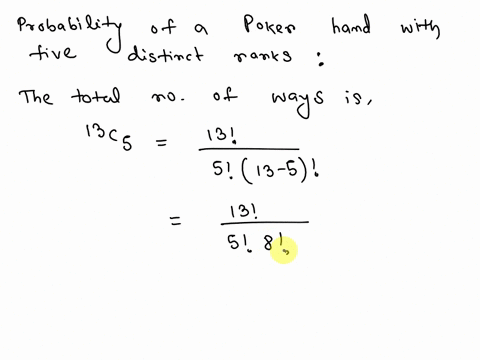 Probability of a Poker hand with
five distinct ranks :
The total no. of ways is,
¹³C₅ = 13! / 5! (13-5)!
= 13! / 5! 8!